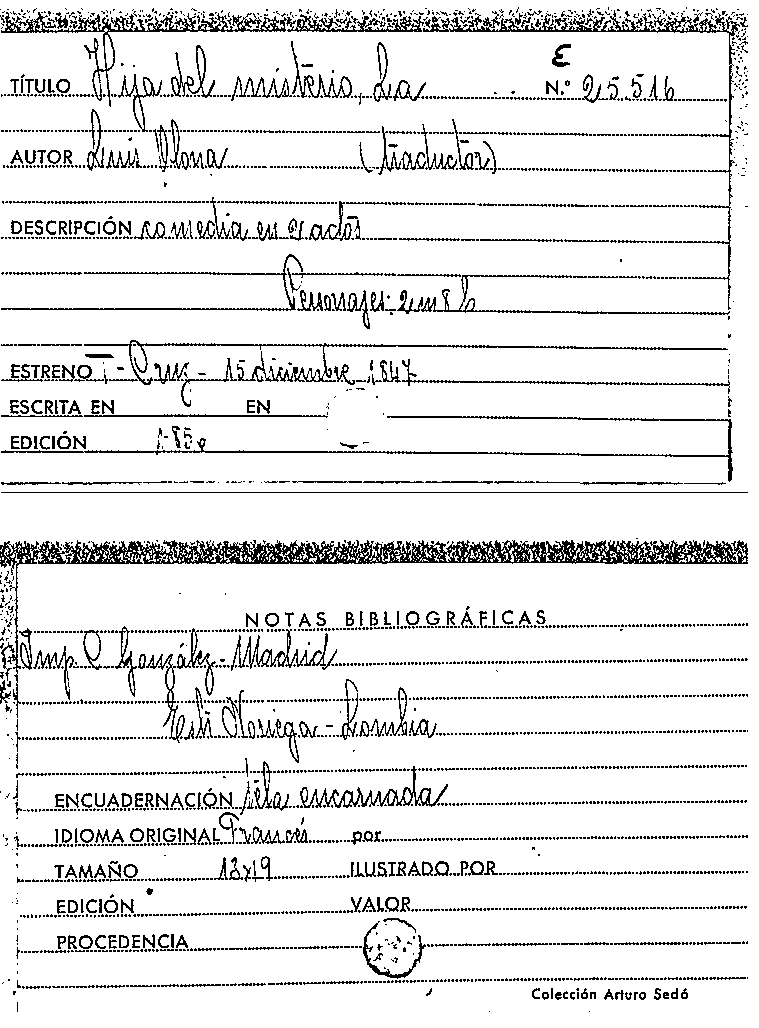 E
TÍTULO Hija del misterio, La N.º 25.516
AUTOR Luis Olona (traductor)
DESCRIPCIÓN comedia en 2 actos
Personajes: 2 m 8 h
ESTRENO T - Cruz - 15 diciembre 1847
ESCRITA EN EN
EDICIÓN
NOTAS BIBLIOGRÁFICAS
Imp C González - Madrid
Noriega - Lombia
ENCUADERNACIÓN tela encarnada
IDIOMA ORIGINAL Francés por
TAMAÑO 13x19 ILUSTRADO POR
EDICIÓN VALOR
PROCEDENCIA
Colección Arturo Sedó